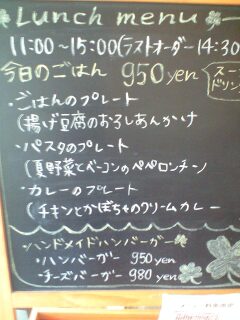 Lunch menu
11:00~15:00(ラストオーダー14:30
今日のごはん 950yen
スー
ドリン
・ごはんのプレート
(揚げ豆腐のおろしあんかけ
・パスタのプレート
(夏野菜とベーコンのペペロンチーノ
・カレーのプレート
(チキンとかぼちゃのクリームカレー
・ハンドメイドハンバーガー
・ハンバーガー 950yen
・チーズバーガー 980yen